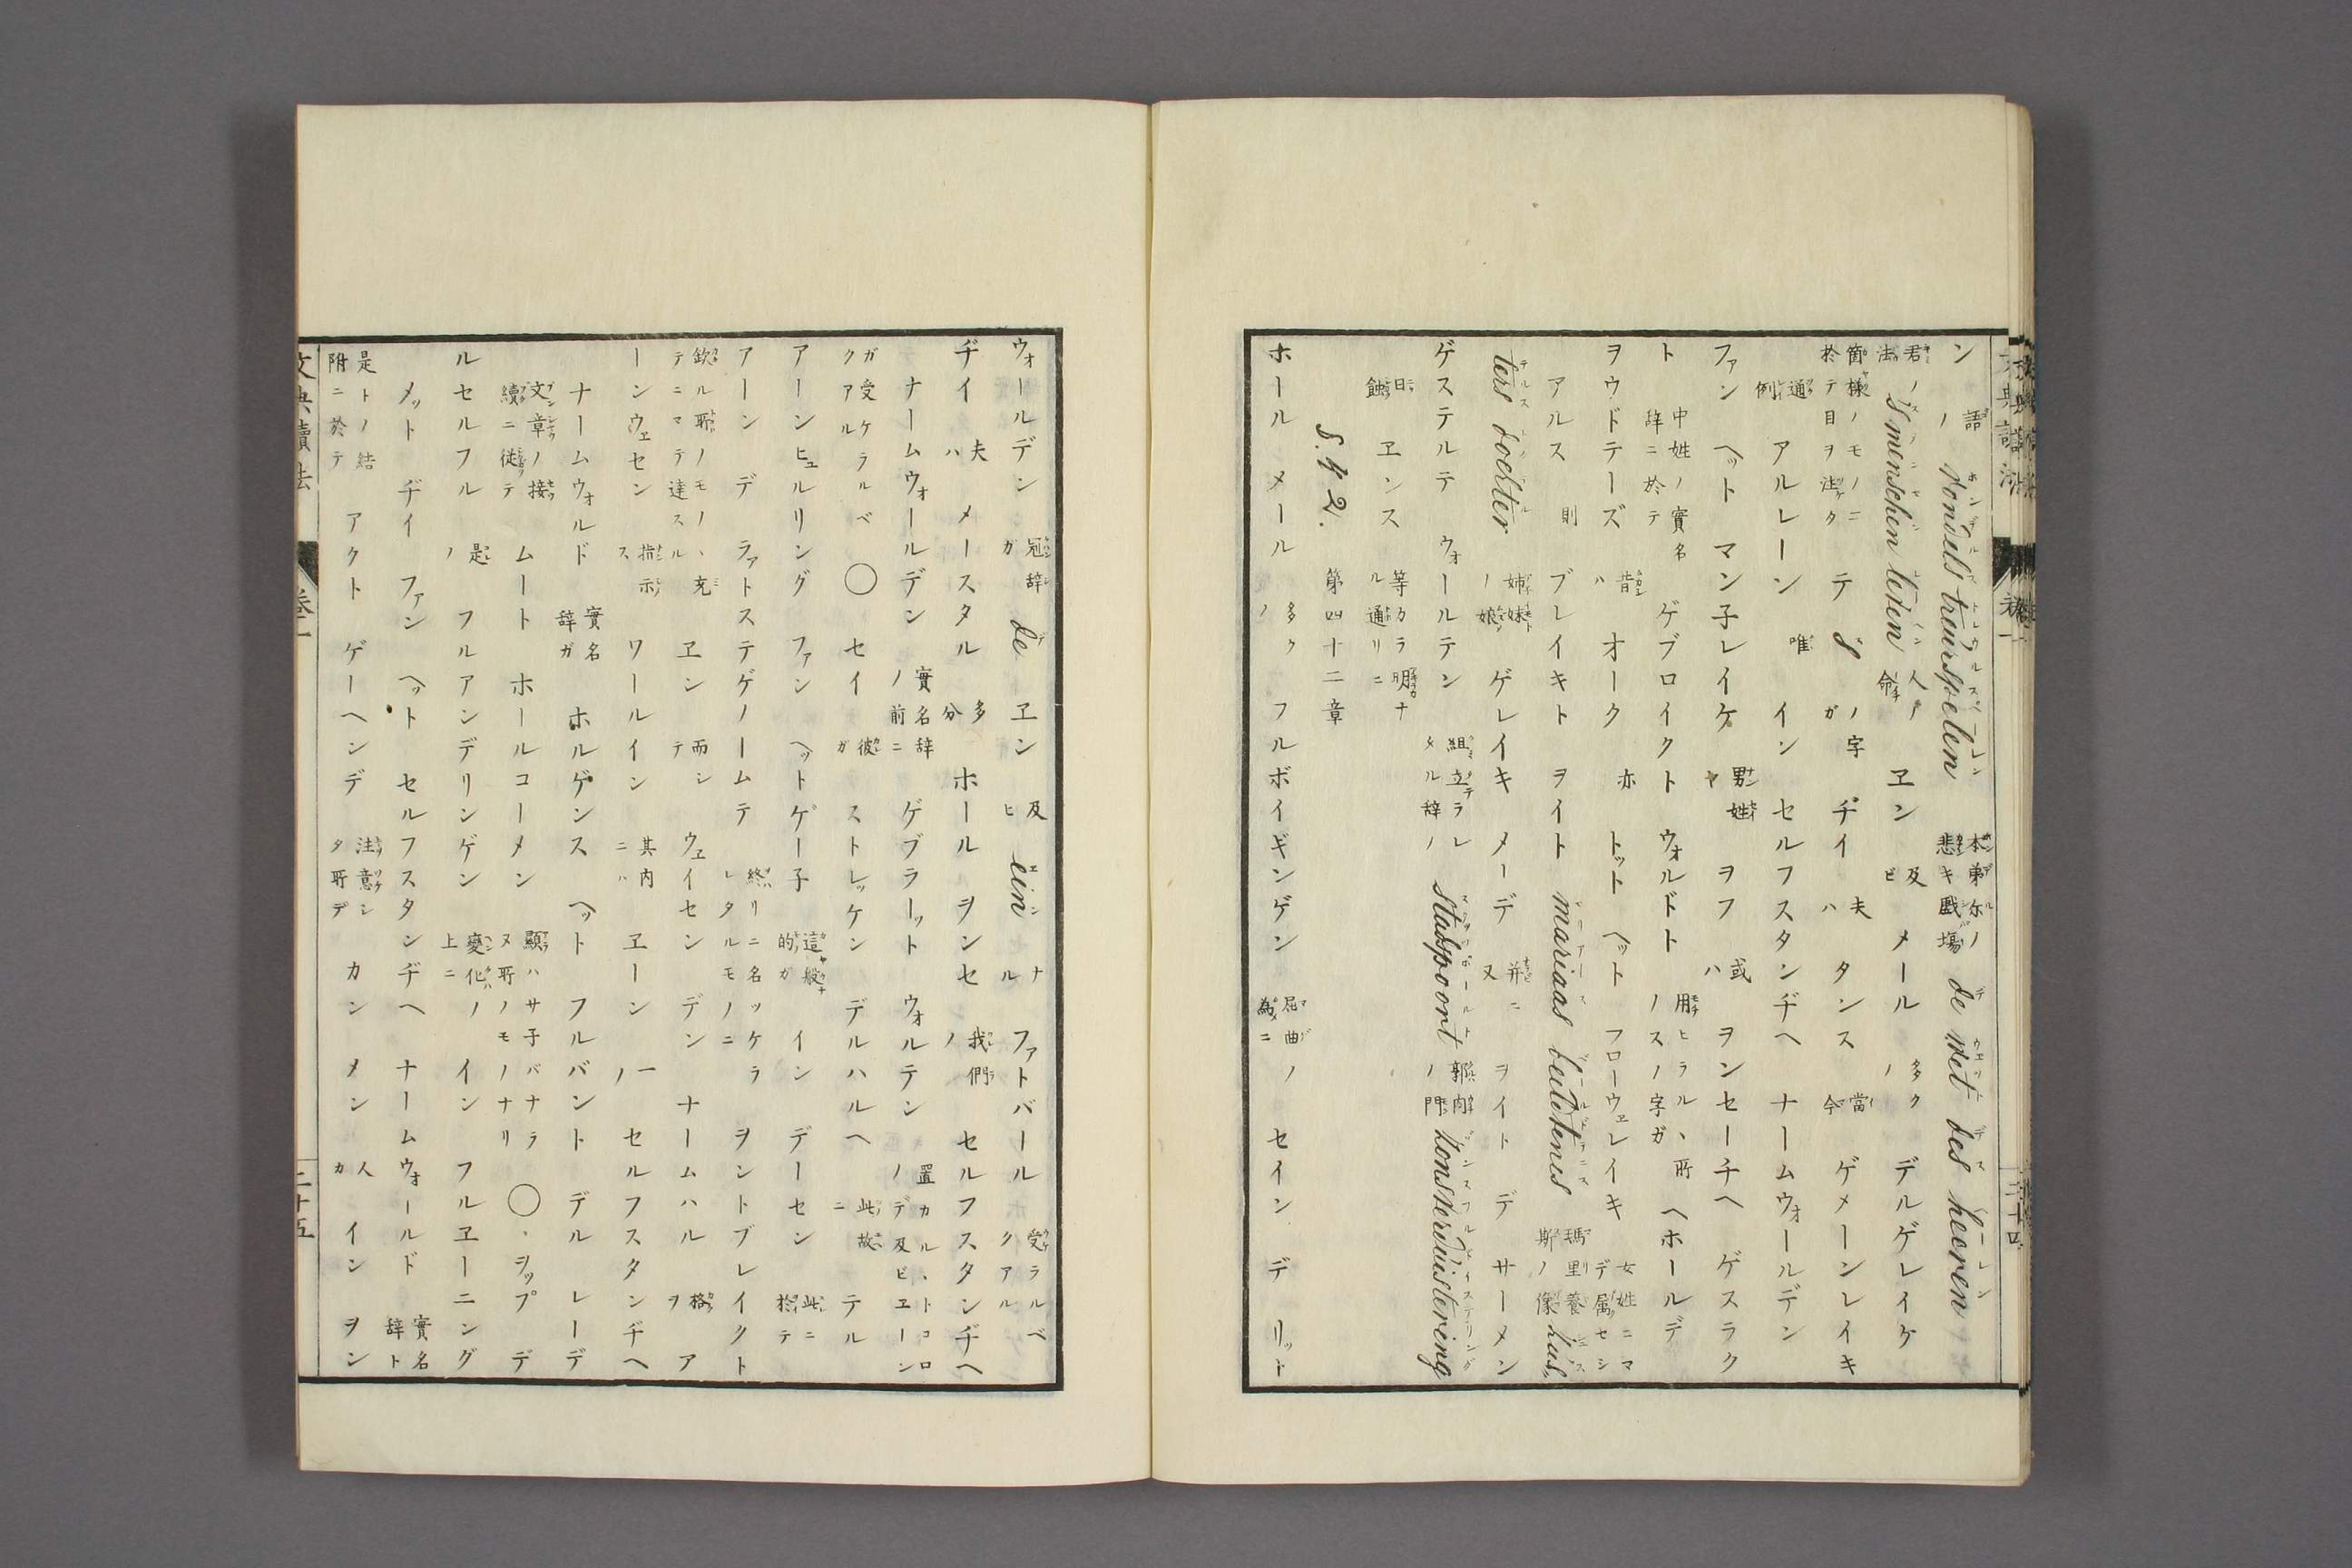 ン 語ノ vondels treurspelen 本弟尓ノ悲キ戯場 de wet des heeren
君ノ法 's menschen leven 人ノ命 ヱン 及ビ メール 多クノ デルゲレイケ
箇様ノモノニ於テ目ヲ注ク テ S ノ字ガ ヂイ 夫ハ タンス 當今 ゲメーンレイキ
通例 アルレーン 唯 イン セルフスタンヂヘ ナームウォールデン
ファン ヘット マン子レイケ 男姓ヤ ヲフ 或ハ ヲンセーチヘ ゲスラク
ト 中姓ノ實名辞ニ於テ ゲブロイクト ウォルドト 用ヒラルヽ所ノスノ字ガ ヘホールデ
ヲウドテーズ 昔ハ オーク 亦 トット ヘット フローウェレイキ 女姓ニマデ属セシ
アルス 則 ブレイキト ヲイト mariaas beeldtenis 瑪里養斯ノ像 zus
ters dochter 姉妹ノ娘 ゲレイキ メーデ 并ニ又 ヲイト デ サーメン
ゲステルテ ウォールテン 組立ラレタル辞ノ stadspoort 郭内ノ門 konstverduistering
日蝕 ヱンス 等カラ明ナル通リニ
S. 42. 第四十二章
ホール メール 多クノ フルボイギンゲン 屈曲ノ為ニ セイン デ リット
ウォールデン 冠辞ガ de ヱン 及ヒ een ナル ファトバール 受ラルベクアル
ヂイ 夫ハ メースタル 多分 ホール ヲンセ 我們ノ セルフスタンヂヘ
ナームウォールデン 實名辞ノ前ニ ゲブラーット ウォルテン 置カルヽトコロノデ及ビヱーン
ガ受ケラルベクアル ◯ セイ 彼ガ ストレッケン デルハルヘ 此故ニ テル
アーンヒュルリング ファン ヘットゲー子 這般的ガ イン デーセン 此ニ於テ
アーン デ ラァトステゲノームテ 終リニ名ッケラレタルモノニ ヲントブレイクト
欽ル耶ノモノヽ充テニマテ達スル ヱン 而シテ ウェイセン デン ナームハル 格ヲ ア
ーンウェセン 指示ス ワールイン 其内ニハ ヱーン 一ノ セルフスタンヂヘ
ナームウォルド 實名辞ガ ホルゲンス ヘット フルバント デル レーデ
文章ノ接續ニ從テ ムート ホールコーメン 顯ハサ子バナラヌ所ノモノナリ ◯ ヲップ デ
ルセルフル 是ノ フルアンデリンゲン 變化ノ上ニ イン フルヱーニング
メット ヂイ ファン ヘット セルフスタンヂヘ ナームウォールド 實名辞ト
是トノ結附ニ於テ アクト ゲーヘンデ 注意シタ所デ カン メン 人カ イン ヲン
文典讀法
卷一
二十五